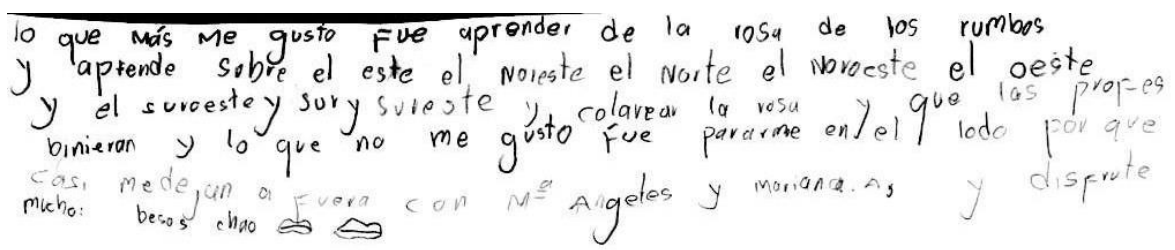 lo que más me gusto Fue aprender de la rosa de los rumbos
y aprende sobre el este el Noreste el Norte el Noroeste el oeste
y el suroeste y sur y sureste y colorear la rosa y que las profes
binieron y lo que no me gusto Fue pararme en el lodo por que
casi me dejan a Fuera con Mª Angeles y Mariana. As y disfrute
mucho: besos chao